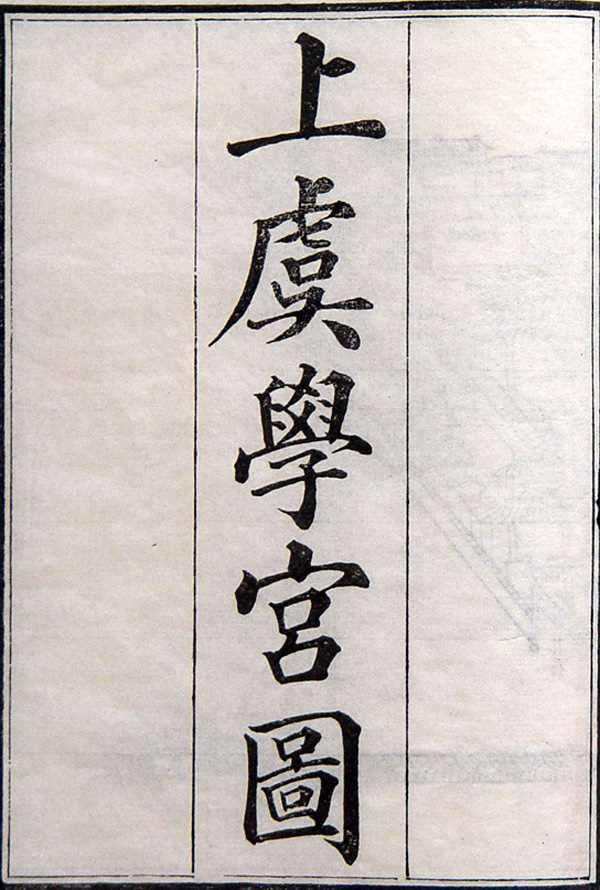 上虞學宮圖